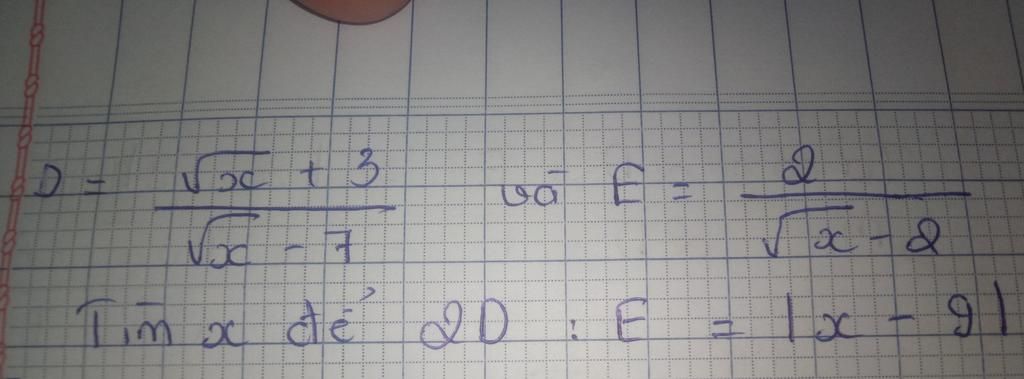 D = (√x + 3)/(√x - 7) và E = 2/(√x - 2)
Tìm x để 2D : E = |x - 9|